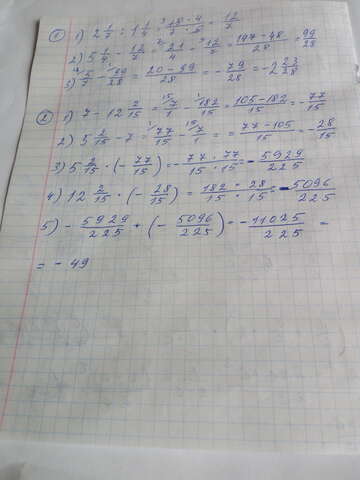 ① 1) 2 1/7 : 1 1/4 = 15 · 4 / 7 · 5 = 12/7
2) 5 1/4 - 12/7 = 21/4 - 12/7 = 147 - 48 / 28 = 99/28
3) 5/7 - 99/28 = 20 - 99 / 28 = - 79/28 = - 2 23/28
② 1) 7 - 12 2/15 = 7/1 - 182/15 = 105 - 182 / 15 = - 77/15
2) 5 2/15 - 7 = 77/15 - 7/1 = = 77 - 105 / 15 = - 28/15
3) 5 2/15 · (- 77/15) = - 77 · 77 / 15 · 15 = - 5929/225
4) 12 2/15 · (- 28/15) = 182 · 28 / 15 · 15 = - 5096/225
5) - 5929/225 + (- 5096/225) = - 11025/225 =
= - 49